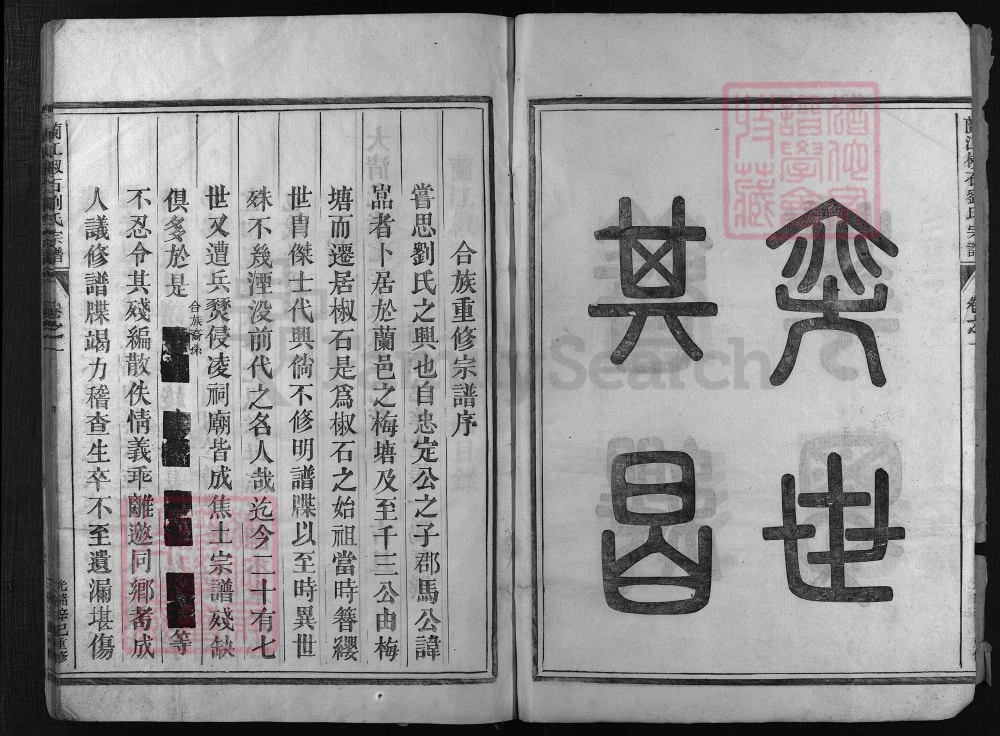 蘭江椒石劉氏宗譜 卷之一
猶他家
譜學會
特藏
奕世
其昌
合族重修宗譜序
嘗思劉氏之興也自忠定公之子郡馬公諱
嵓者卜居於蘭邑之梅塘及至千三公由梅
塘而遷居椒石是爲椒石之始祖當時簪纓
世胄傑士代興倘不修明譜牒以至時異世
殊不幾湮没前代之名人哉迄今二十有七
世又遭兵燹侵凌祠廟皆成焦土宗譜殘缺
俱多於是合族裔孫 等
不忍令其殘編散佚情義乖離邀同鄉耆成
人議修譜牒竭力稽查生卒不至遺漏堪傷
蘭江椒石劉氏宗譜 卷之一 光緒辛巳重修
FamilySearch